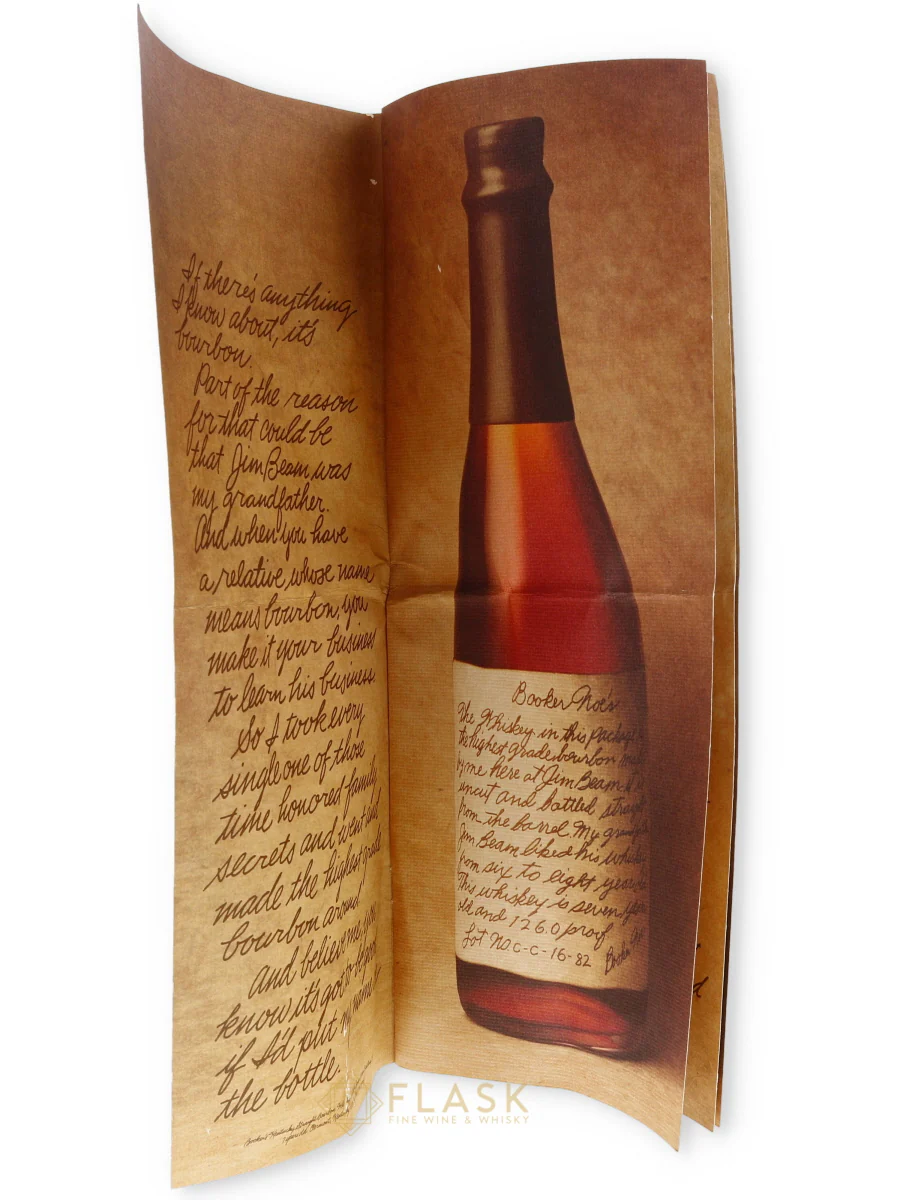 If there's anything
I know about, it's
bourbon.
Part of the reason
for that could be
that Jim Beam was
my grandfather.
And when you have
a relative whose name
means bourbon, you
make it your business
to learn his business.
So I took every
single one of those
time honored family
secrets and went and
made the highest grade
bourbon around.
And believe me, you
know it's got to be good
if I'd put my name on
the bottle.
Booker's Kentucky Straight Bourbon
Booker Noe's
The Whiskey in this package
the highest grade bourbon
by me here at Jim Beam
uncut and bottled straight
from the barrel. My
Jim Beam liked his
from six to eight years
This whiskey is seven years
old and 126.0 proof
Lot No. C-C-16-82
Booker Noe
FLASK
FINE WINE & WHISKY